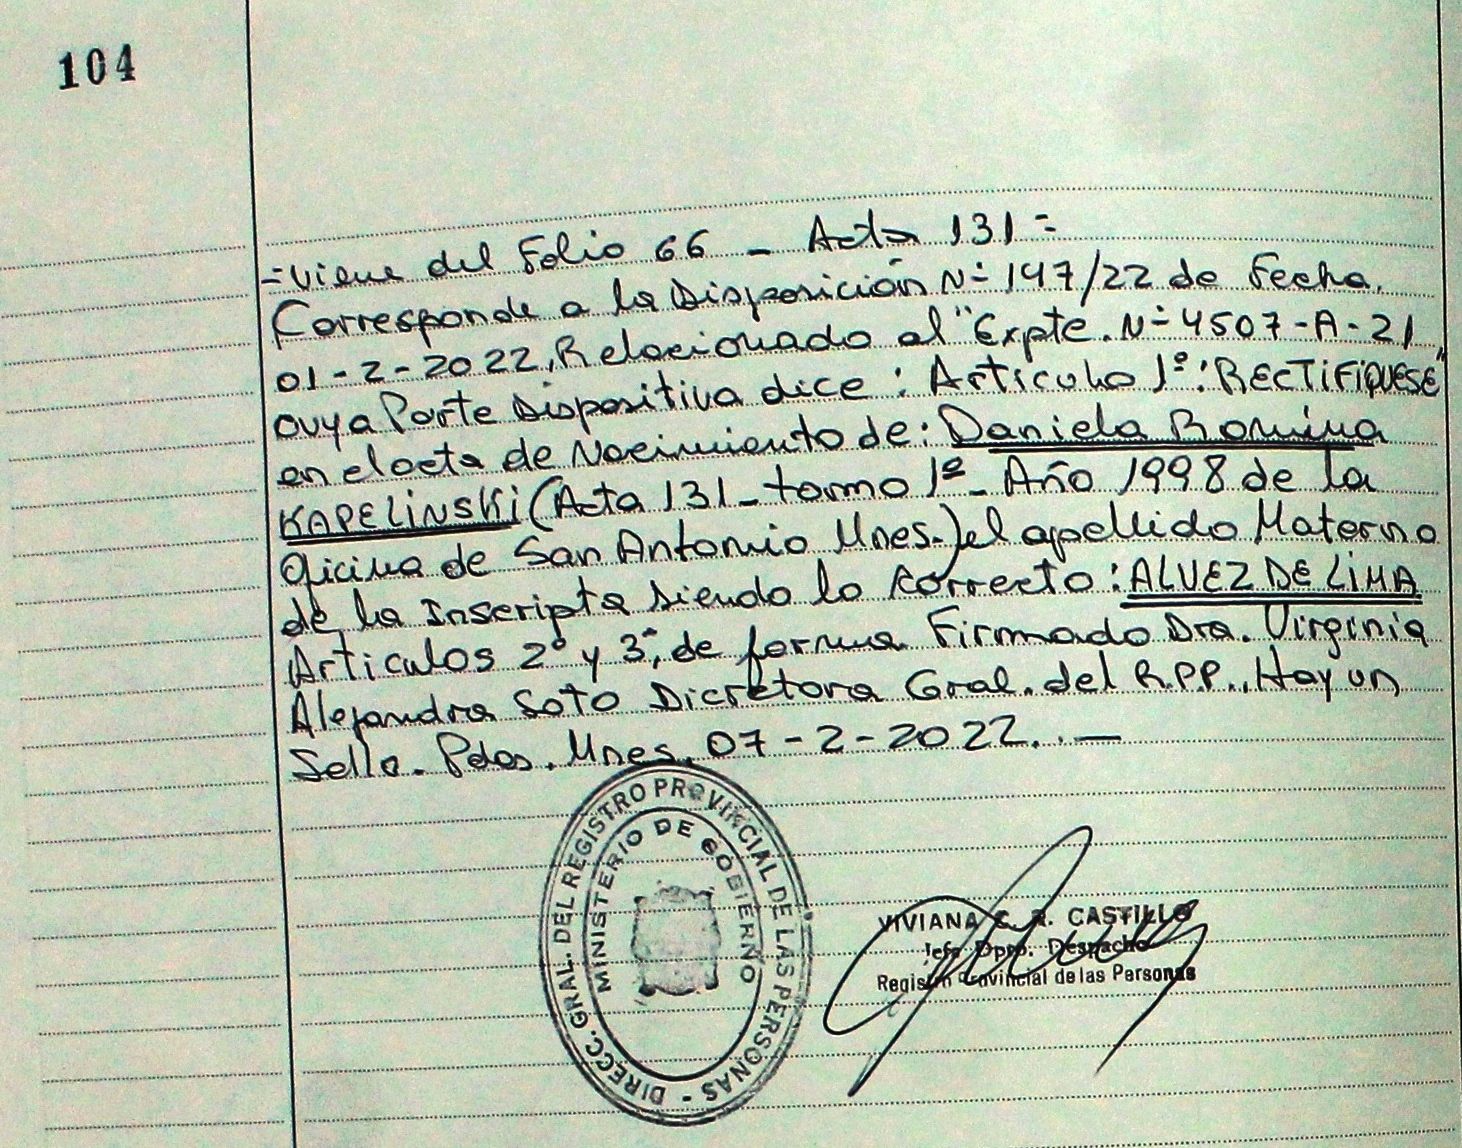 104
=Viene del Folio 66 - Acta 131=
Corresponde a la Disposición Nº 147/22 de Fecha.
01-2-2022, Relacionado al "Expte. Nº 4507-A-21"
cuya Parte Dispositiva dice: Articulo 1º: RECTIFIQUESE
en el acta de Nacimiento de: Daniela Romina
KAPELINSKI (Acta 131 - tomo 1º - Año 1998 de la
oficina de San Antonio Mnes.) el apellido Materno
de la Inscripta siendo lo correcto: ALVEZ DE LIMA
Articulos 2º y 3º, de forma Firmado Dra. Virginia
Alejandra Soto Dicretora Gral. del R.P.P., Hay un
Sello. Pdas. Mnes. 07-2-2022. . —
DIRECC. GRAL. DEL REGISTRO PROVINCIAL DE LAS PERSONAS -
MINISTERIO DE GOBIERNO
VIVIANA C. R. CASTILLO
Jefe Dpto. Despacho
Registro Provincial de las Personas